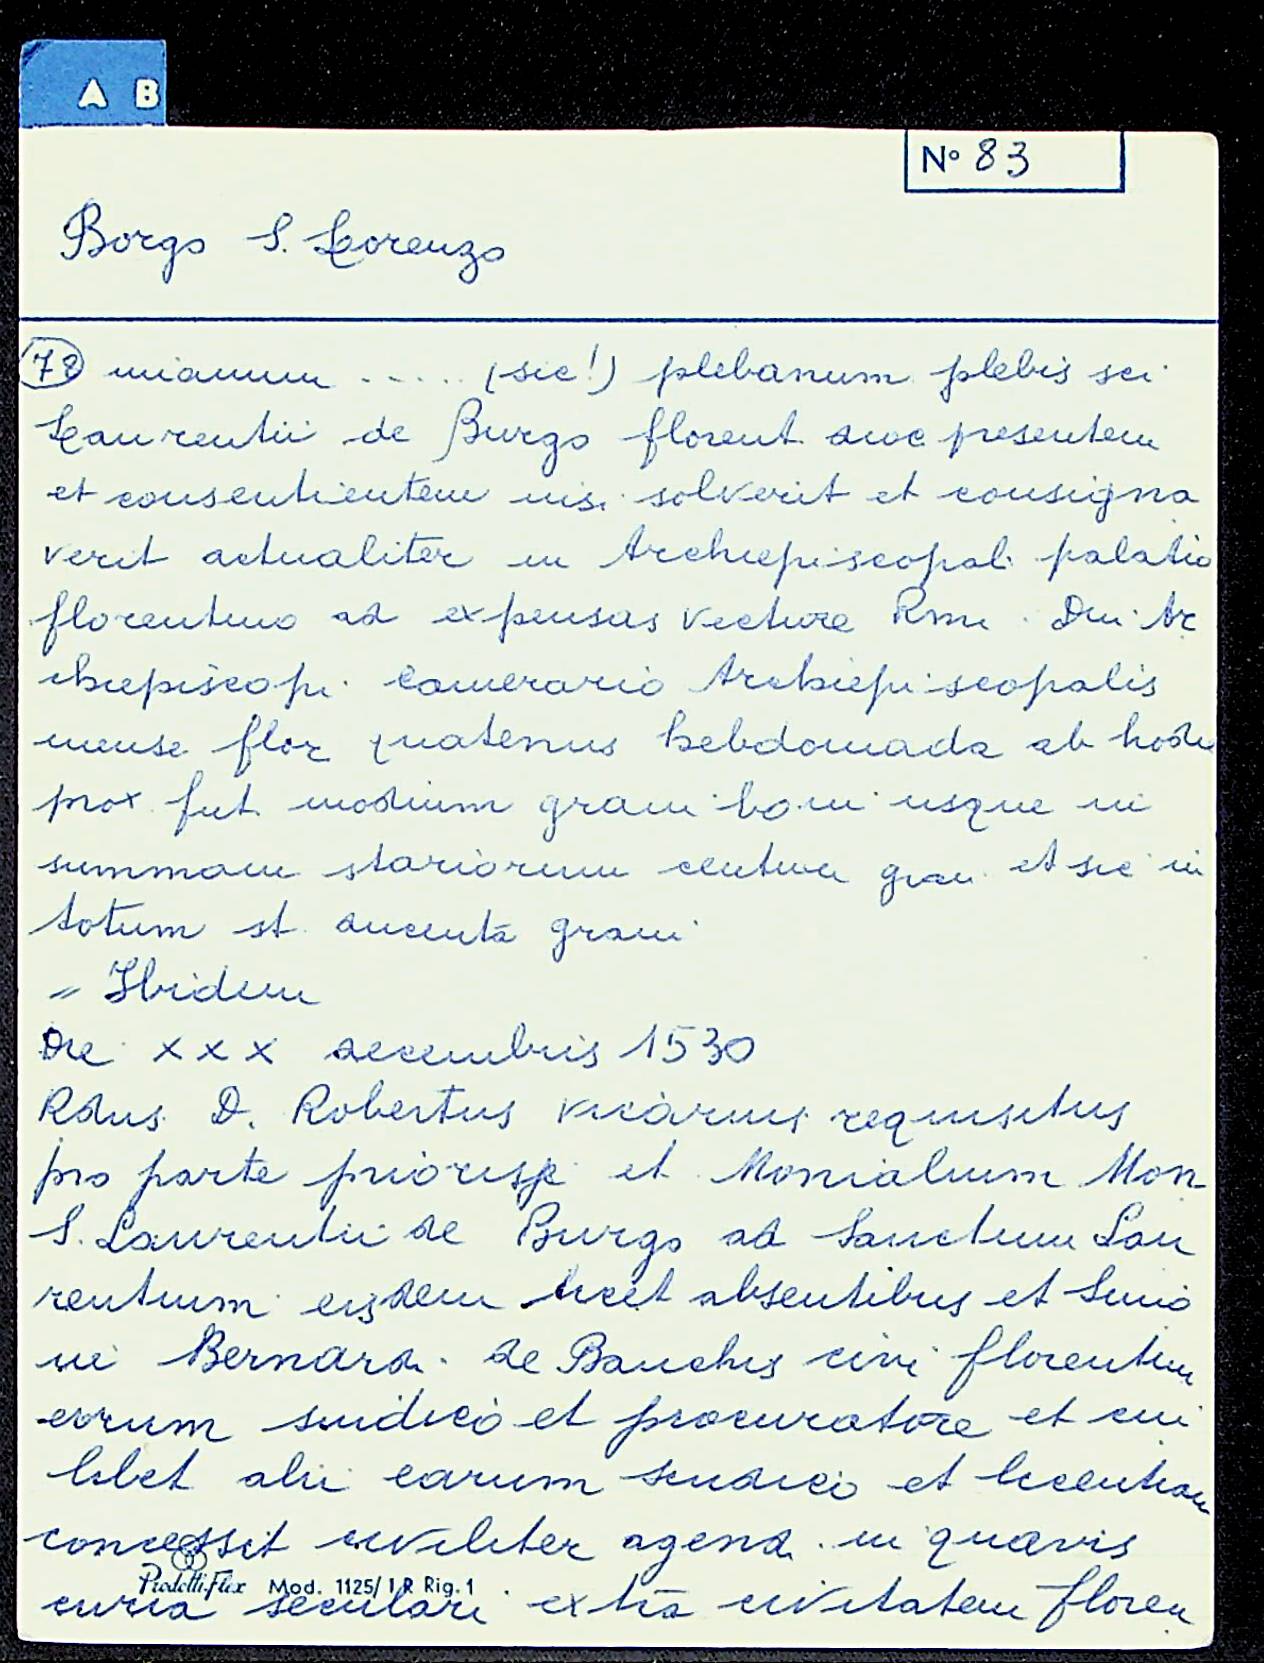 A B
N° 83
Borgo S. Lorenzo
78 mianum ..... (sic!) plebanum plebis sci
Laurentii de Burgo florent. dioc presentem
et consentientem nisi solverit et consigna
verit actualiter in Archiepiscopali palatio
florentino ad expensas vecture Rmi. Dni Ar
chiepiscopi camerario Archiepiscopalis
mense flor quatenus hebdomada ab hodie
prox fut. modium grani boni usque in
summam stariorum centum gran. et sic in
totum st. ducenta grani
" Ibidem
Die xxx decembris 1530
Rdus D. Robertus vicarius requisitus
pro parte priorisse et Monialium Mon
S. Laurentii de Burgo ad Sanctum Lau
rentium eisdem licet absentibus et Simo
ni Bernardi de Banchis civi florentin
eorum sindico et procuratore et cui
libet alii earum sindico et licentiam
concessit civiliter agendi in quavis
ProdottiFlex Mod. 1125/1R Rig. 1
curia seculari extra civitatem floren